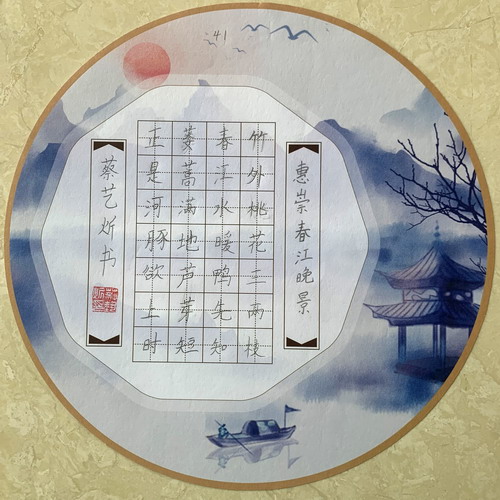 41
惠崇春江晚景
竹外桃花三两枝
春江水暖鸭先知
蒌蒿满地芦芽短
正是河豚欲上时
蔡艺炘书